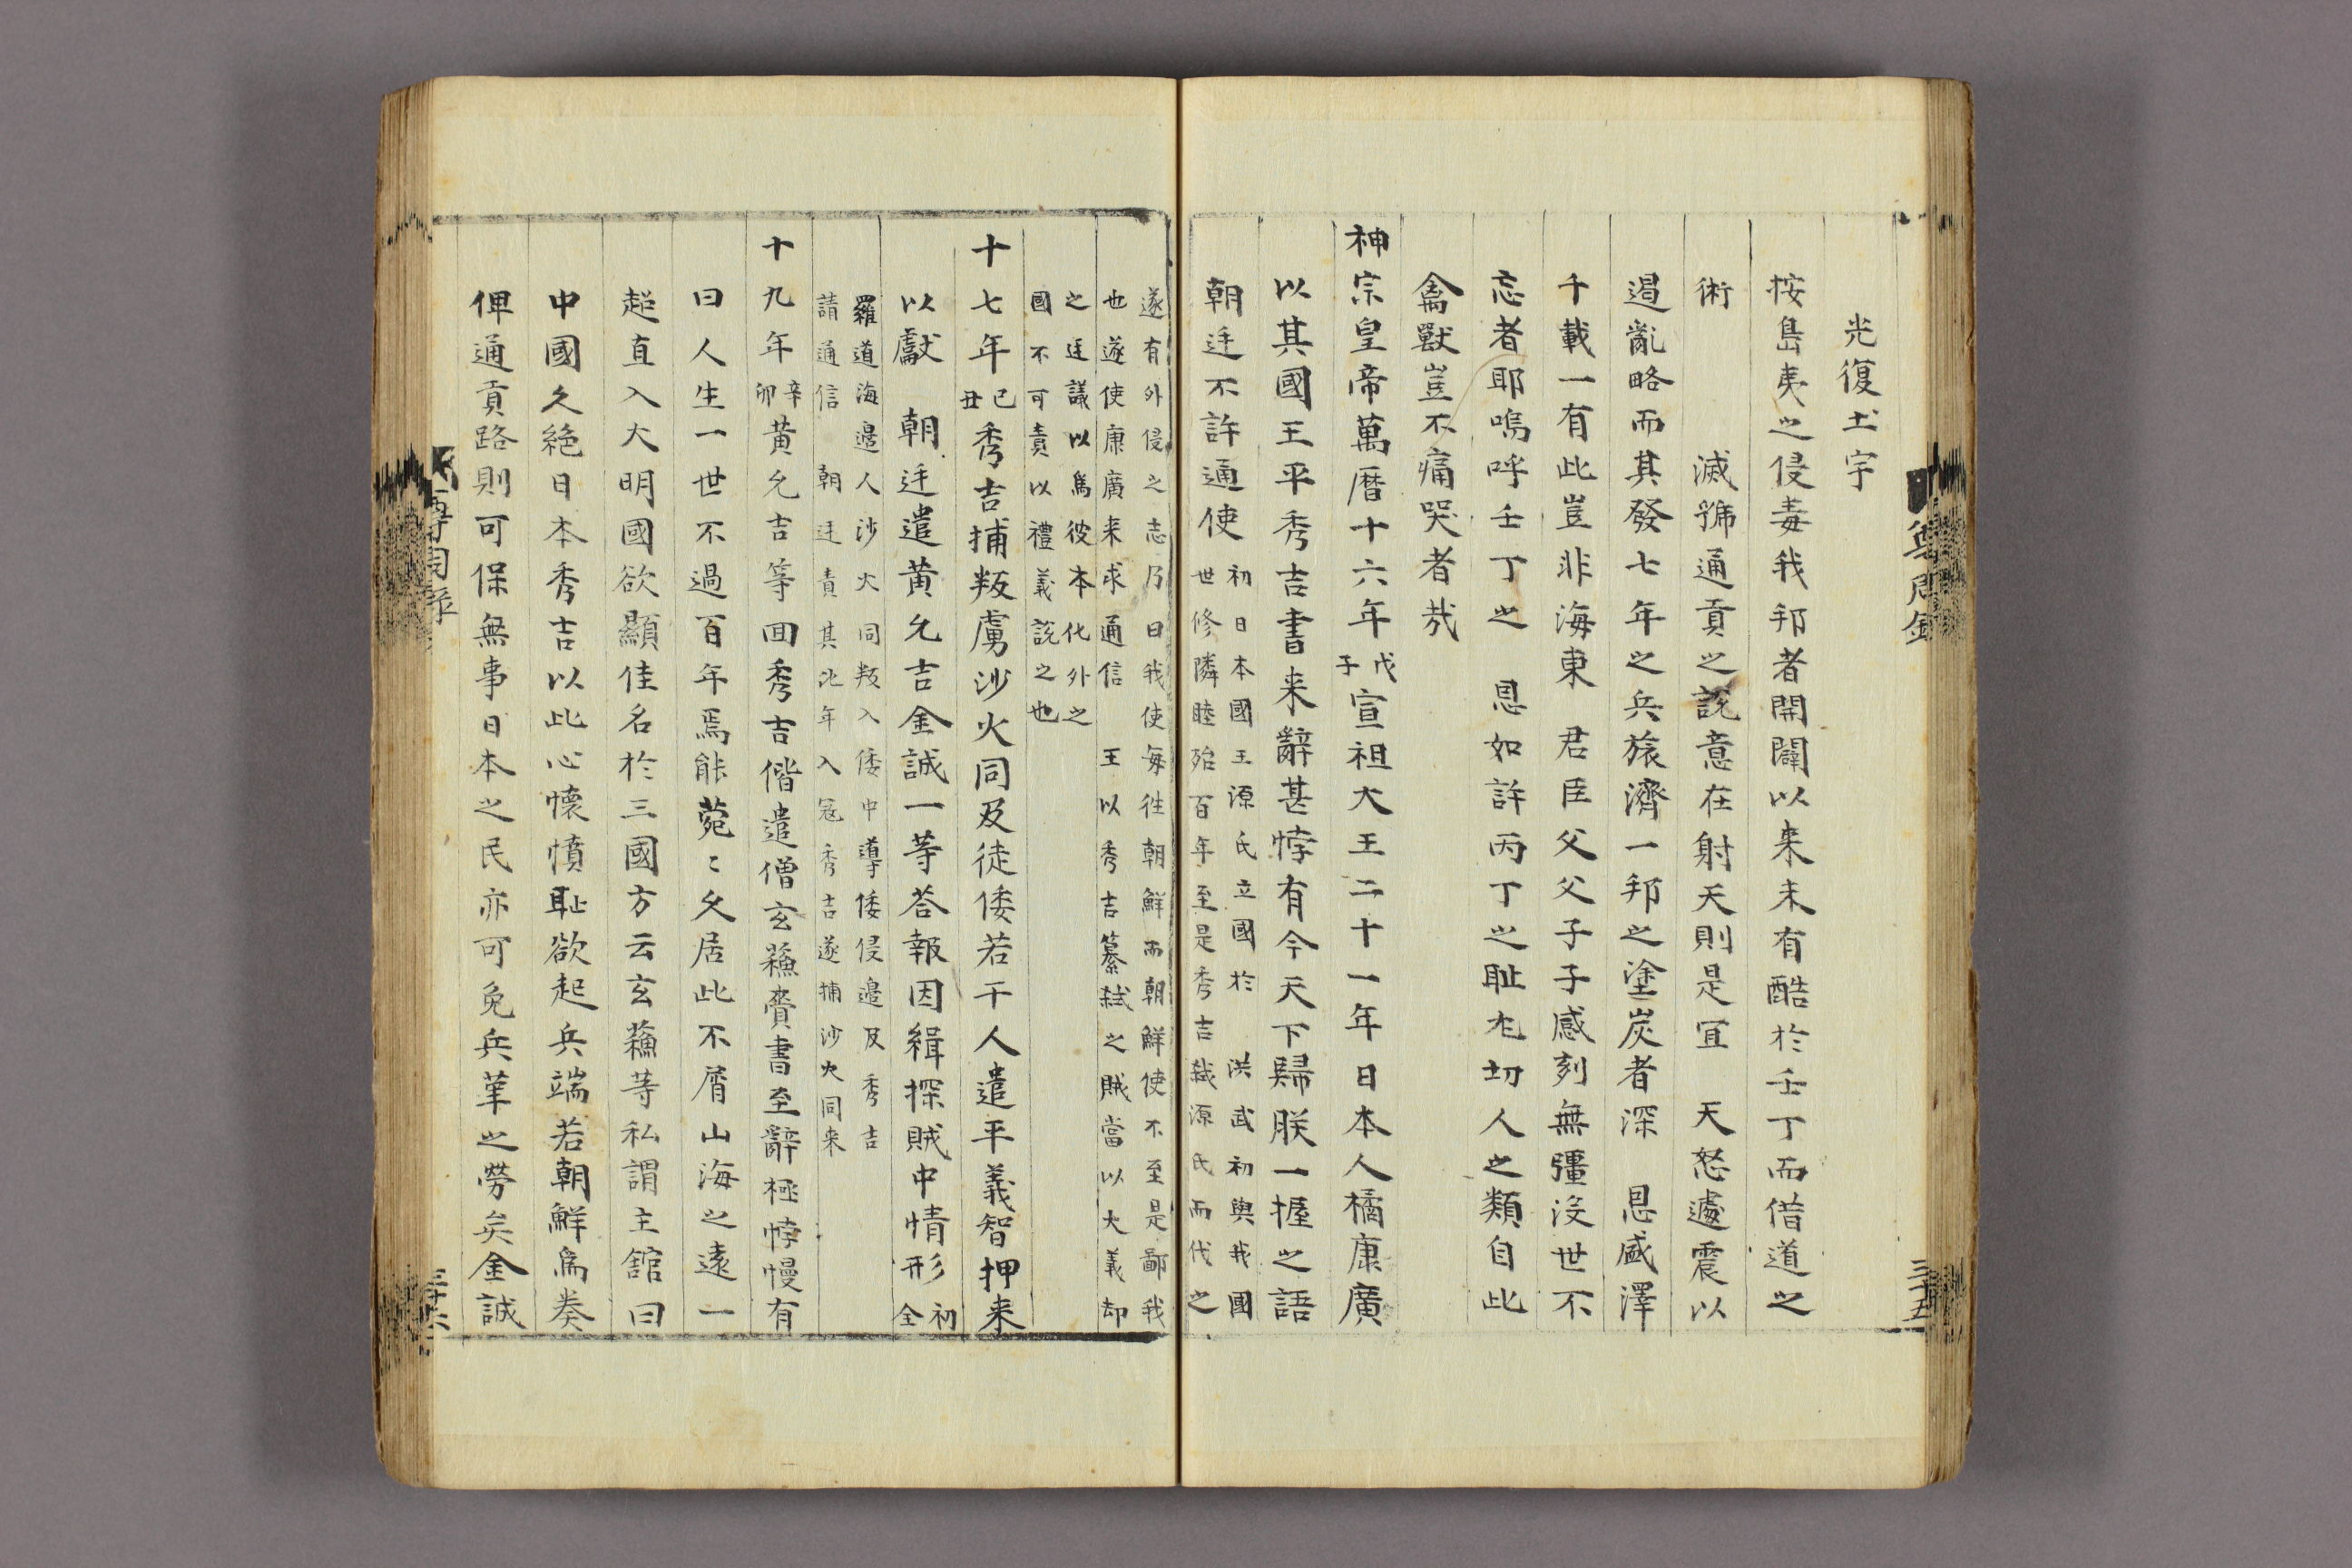 光復土宇
按島夷之侵毒我邦者開闢以来未有酷於壬丁而借道之
術　滅號通貢之說意在射天則是冝　天怒遽震以
遏亂略而其發七年之兵旅濟一邦之塗炭者深　恩盛澤
千載一有此豈非海東　君臣父父子子感刻無彊沒世不
忘者耶嗚呼壬丁之　恩如許丙丁之耻尤切人之類自此
禽獸豈不痛哭者哉
神宗皇帝萬曆十六年戊子宣祖大王二十一年日本人橘康廣
以其國王平秀吉書来辭甚悖有今天下歸朕一握之語
朝廷不許通使
初日本國王源氏立國於　洪武初與我國
世修隣睦殆百年至是秀吉弑源氏而代之
遂有外侵之志乃曰我使每往朝鮮而朝鮮使不至是鄙我
也遂使康廣来求通信　王以秀吉簒弑之賊當以大義却
之廷議以爲彼本化外之
國不可責以禮義說之也
十七年己丑秀吉捕叛虜沙火同及徒倭若干人遣平義智押来
以獻　朝廷遣黄允吉金誠一等荅報因緝探賊中情形
初全
羅道海邊人沙火同叛入倭中導倭侵邊及秀吉
請通信　朝廷責其比年入冦秀吉遂捕沙火同来
十九年辛卯黄允吉等回秀吉偕遣僧玄蘓賫書至辭極悖慢有
曰人生一世不過百年焉能菀〻久居此不屑山海之遠一
超直入大明國欲顯佳名於三國方云玄蘓等私謂主舘曰
中國久絶日本秀吉以此心懷憤耻欲起兵端若朝鮮爲奏
俾通貢路則可保無事日本之民亦可免兵革之勞矣金誠
尊周錄
三十五
尊周錄
三十六